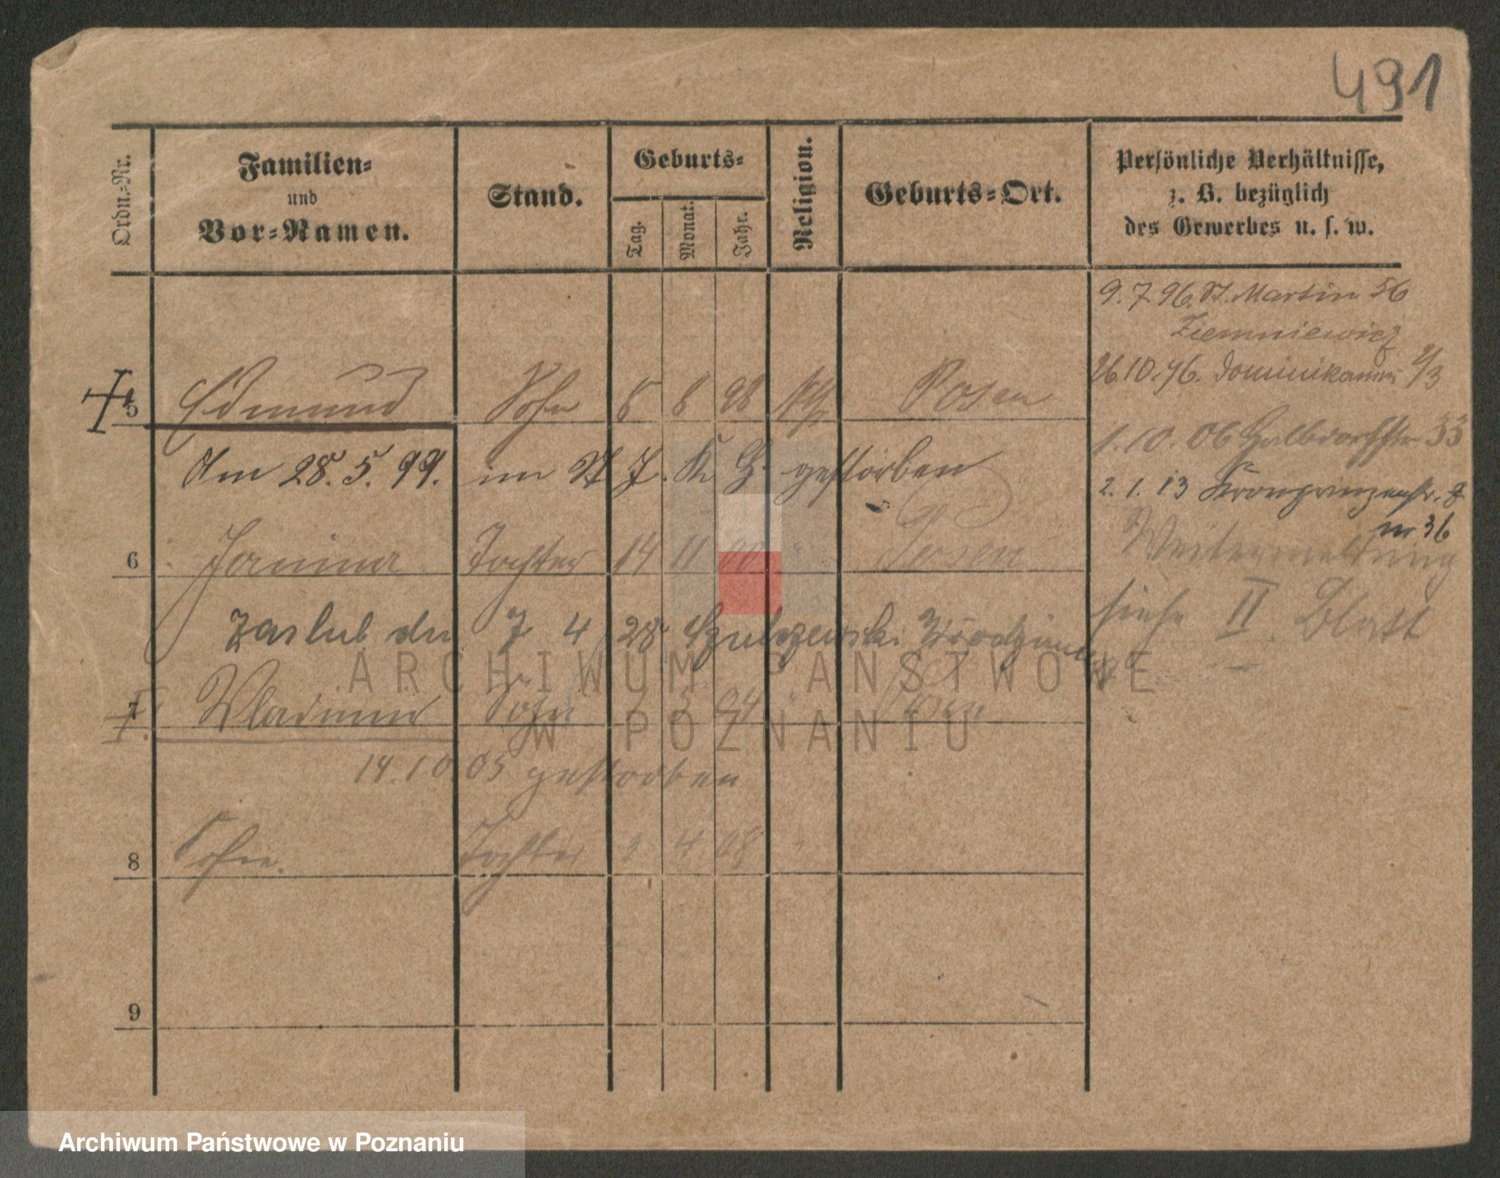 491
Ordn.-Nr.
Familien-
und
Vor-Namen.
Stand.
Geburts-
Tag.
Monat.
Jahr.
Religion.
Geburts-Ort.
Persönliche Verhältnisse,
z. B. bezüglich
des Gewerbes u. s. w.
9.7.96. St. Martin 56
Ziemniewicz
26.10.96. Dominikanerstr 2/3
5 Edmund Sohn 6 8 98 Posen
1.10.06 Halbdorfstr 33
Am 28.5.99. im St J. K. H. gestorben
2.1.13 Kronprinzenstr.
nr 36
6 Janina Tochter 14 11 00 " Posen
Weitermeldung
siehe II. Blatt
zaślub dn 7 4 28
7 Wladimir Sohn 5 04 " Posen
14.10.05 gestorben
8 Sofie. Tochter 3 4 08 "
9
ARCHIWUM PAŃSTWOWE
W POZNANIU
Archiwum Państwowe w Poznaniu